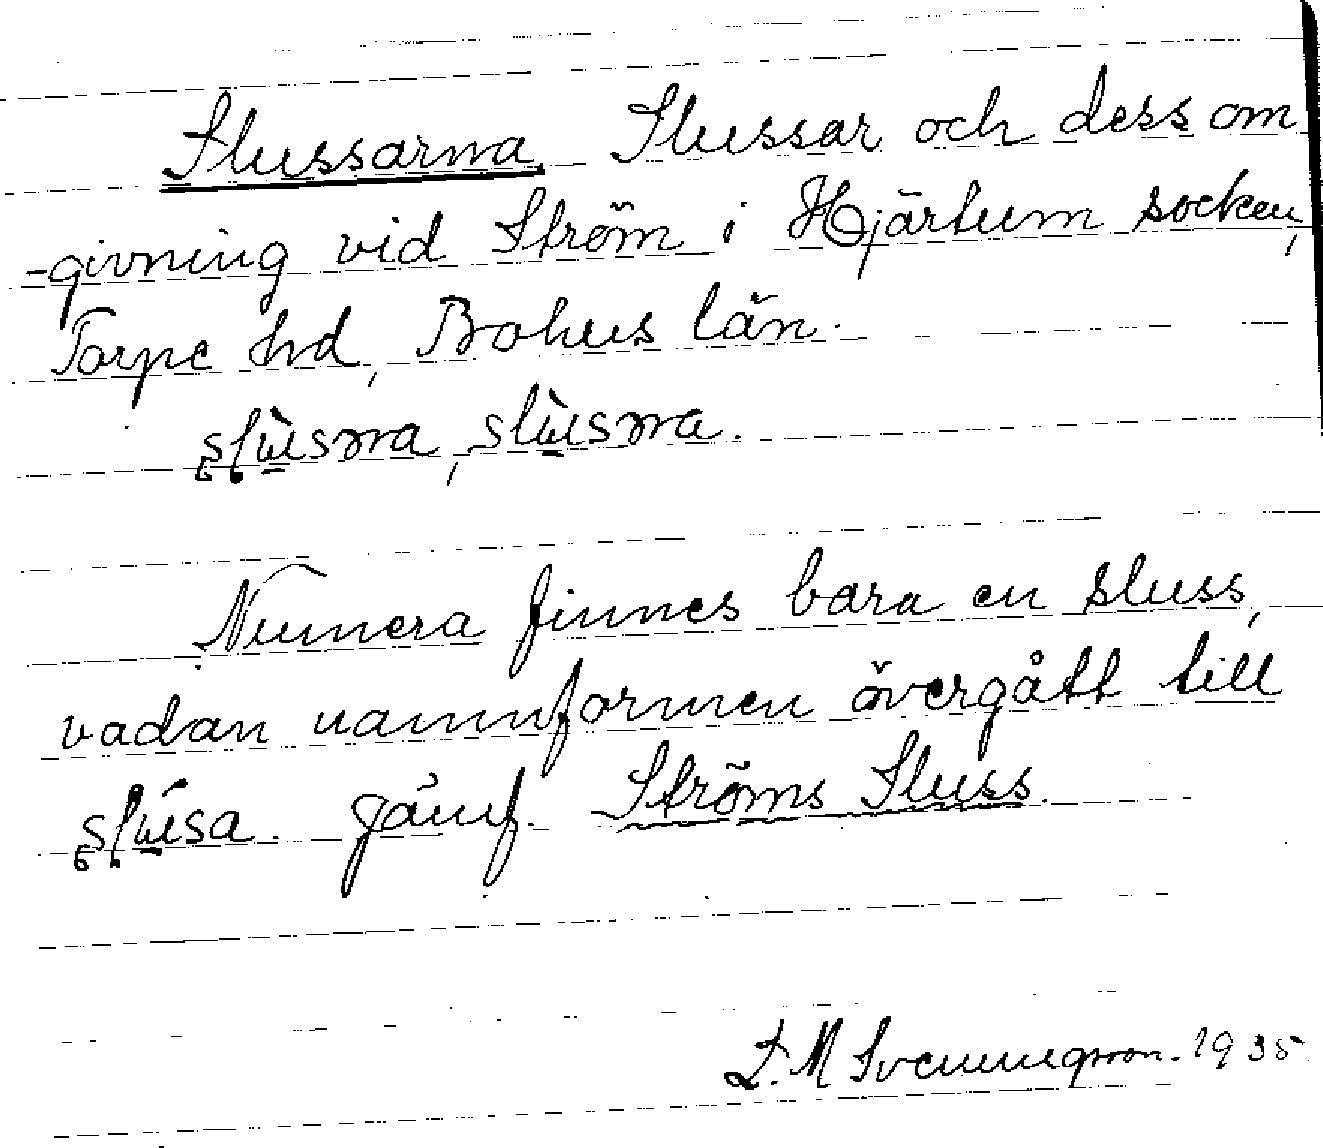 Slussarna. Slussar och dess om
-givning vid Ström i Hjärtum socken,
Torpe hd, Bohus län.
slùsna, slùsna.
Numera finnes bara en sluss,
vadan namnformen övergått till
slúsa. Jämf. Ströms Sluss.
L. M Svenungsson. 1935